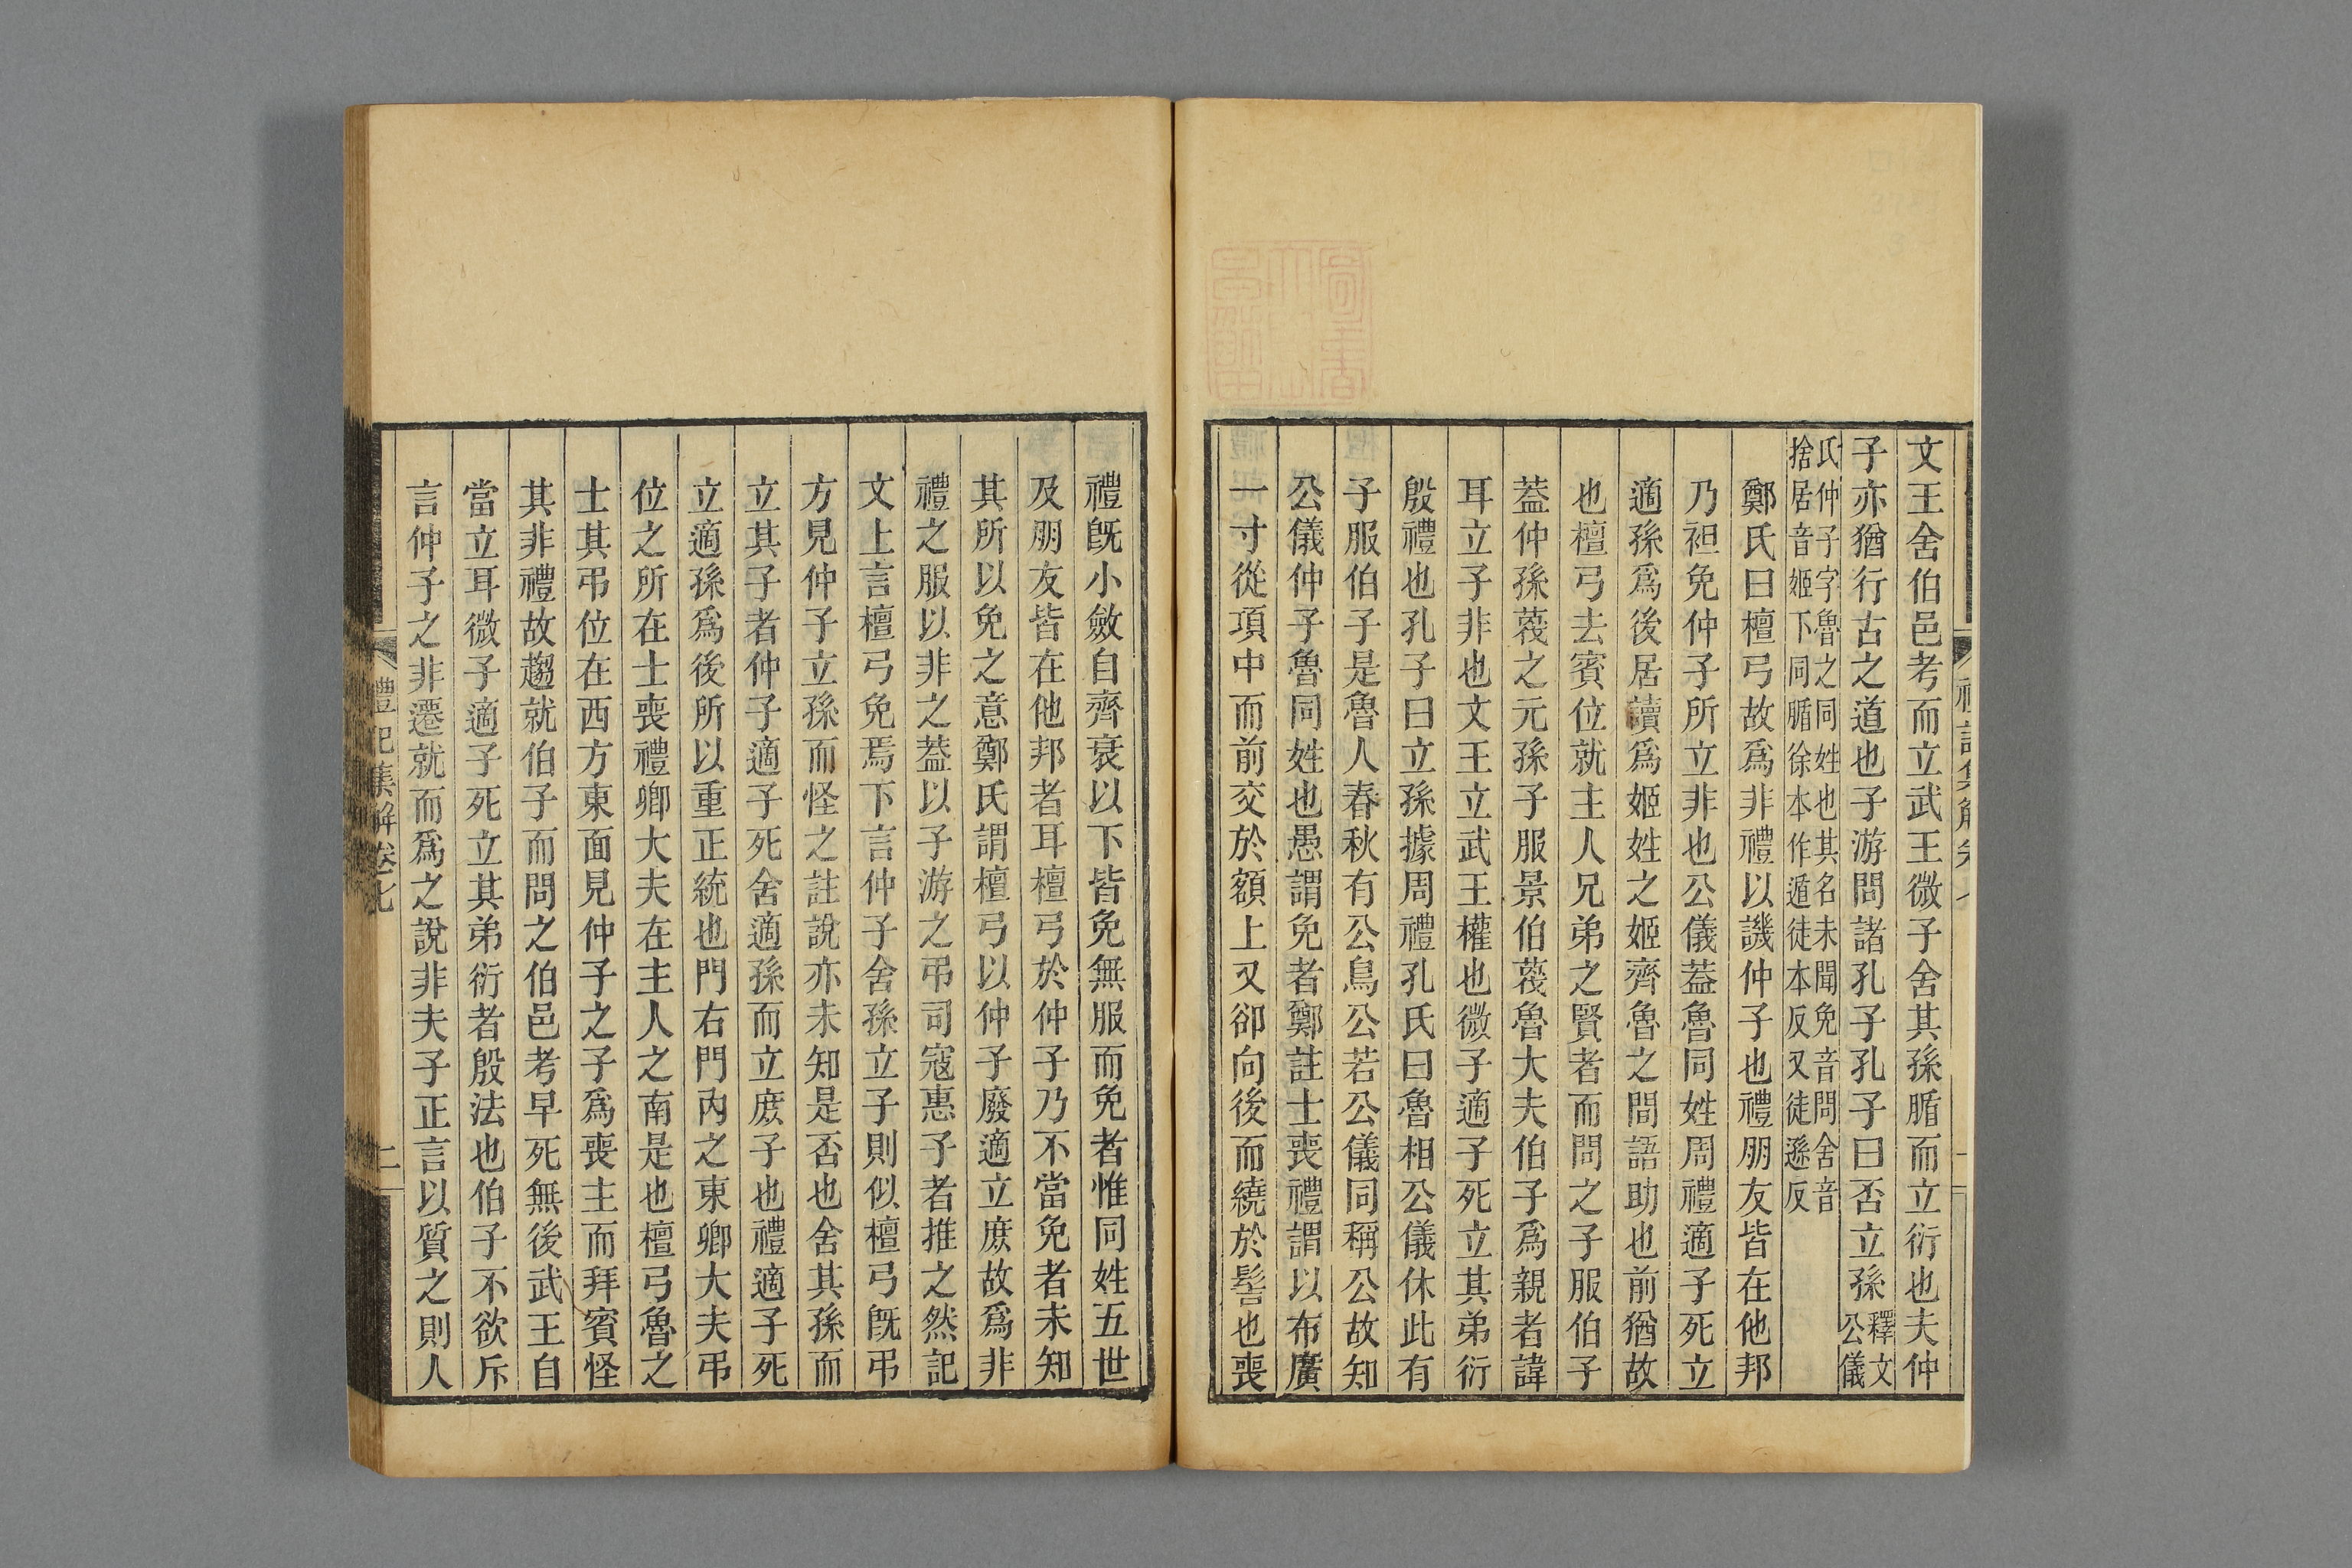 文王舍伯邑考而立武王微子舍其孫腯而立衍也夫仲
子亦猶行古之道也子游問諸孔子孔子曰否立孫釋文公儀
氏仲子字魯之同姓也其名未聞免音問舍音
捨居音姬下同腯徐本作遁徒本反又徒遜反
鄭氏曰檀弓故爲非禮以譏仲子也禮朋友皆在他邦
乃袒免仲子所立非也公儀蓋魯同姓周禮適子死立
適孫爲後居讀爲姬姓之姬齊魯之間語助也前猶故
也檀弓去賓位就主人兄弟之賢者而問之子服伯子
蓋仲孫蔑之元孫子服景伯蔑魯大夫伯子爲親者諱
耳立子非也文王立武王權也微子適子死立其弟衍
殷禮也孔子曰立孫據周禮孔氏曰魯相公儀休此有
子服伯子是魯人春秋有公鳥公若公儀同稱公故知
公儀仲子魯同姓也愚謂免者鄭註士喪禮謂以布廣
一寸從項中而前交於額上又卻向後而繞於髻也喪
禮既小斂自齊衰以下皆免無服而免者惟同姓五世
及朋友皆在他邦者耳檀弓於仲子乃不當免者未知
其所以免之意鄭氏謂檀弓以仲子廢適立庶故爲非
禮之服以非之蓋以子游之弔司寇惠子者推之然記
文上言檀弓免焉下言仲子舍孫立子則似檀弓既弔
方見仲子立孫而怪之註說亦未知是否也舍其孫而
立其子者仲子適子死舍適孫而立庶子也禮適子死
立適孫爲後所以重正統也門右門內之東卿大夫弔
位之所在士喪禮卿大夫在主人之南是也檀弓魯之
士其弔位在西方東面見仲子之子爲喪主而拜賓怪
其非禮故趨就伯子而問之伯邑考早死無後武王自
當立耳微子適子死立其弟衍者殷法也伯子不欲斥
言仲子之非遷就而爲之說非夫子正言以質之則人
禮記集解卷七
二